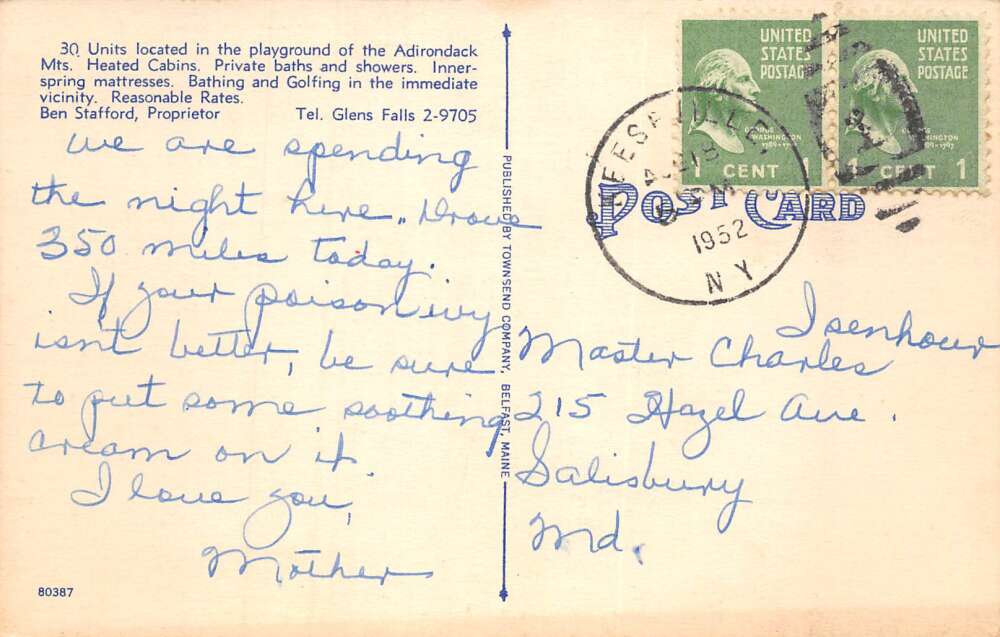 30 Units located in the playground of the Adirondack
Mts. Heated Cabins. Private baths and showers. Inner-
spring mattresses. Bathing and Golfing in the immediate
vicinity. Reasonable Rates.
Ben Stafford, Proprietor Tel. Glens Falls 2-9705
We are spending
the night here. Drove
350 miles today.
If your poison ivy
isn't better, be sure
to put some soothing
cream on it.
I love you,
Mother
80387
PUBLISHED BY TOWNSEND COMPANY, BELFAST, MAINE
UNITED
STATES
POSTAGE
GEORGE
WASHINGTON
1789-1797
1 CENT 1
UNITED
STATES
POSTAGE
GEORGE
WASHINGTON
1789-1797
1 CENT 1
KEESEVILLE,
18
PM
1952
N Y
POST CARD
Isenhour
Master Charles
215 Hazel Ave.
Salisbury
Md.